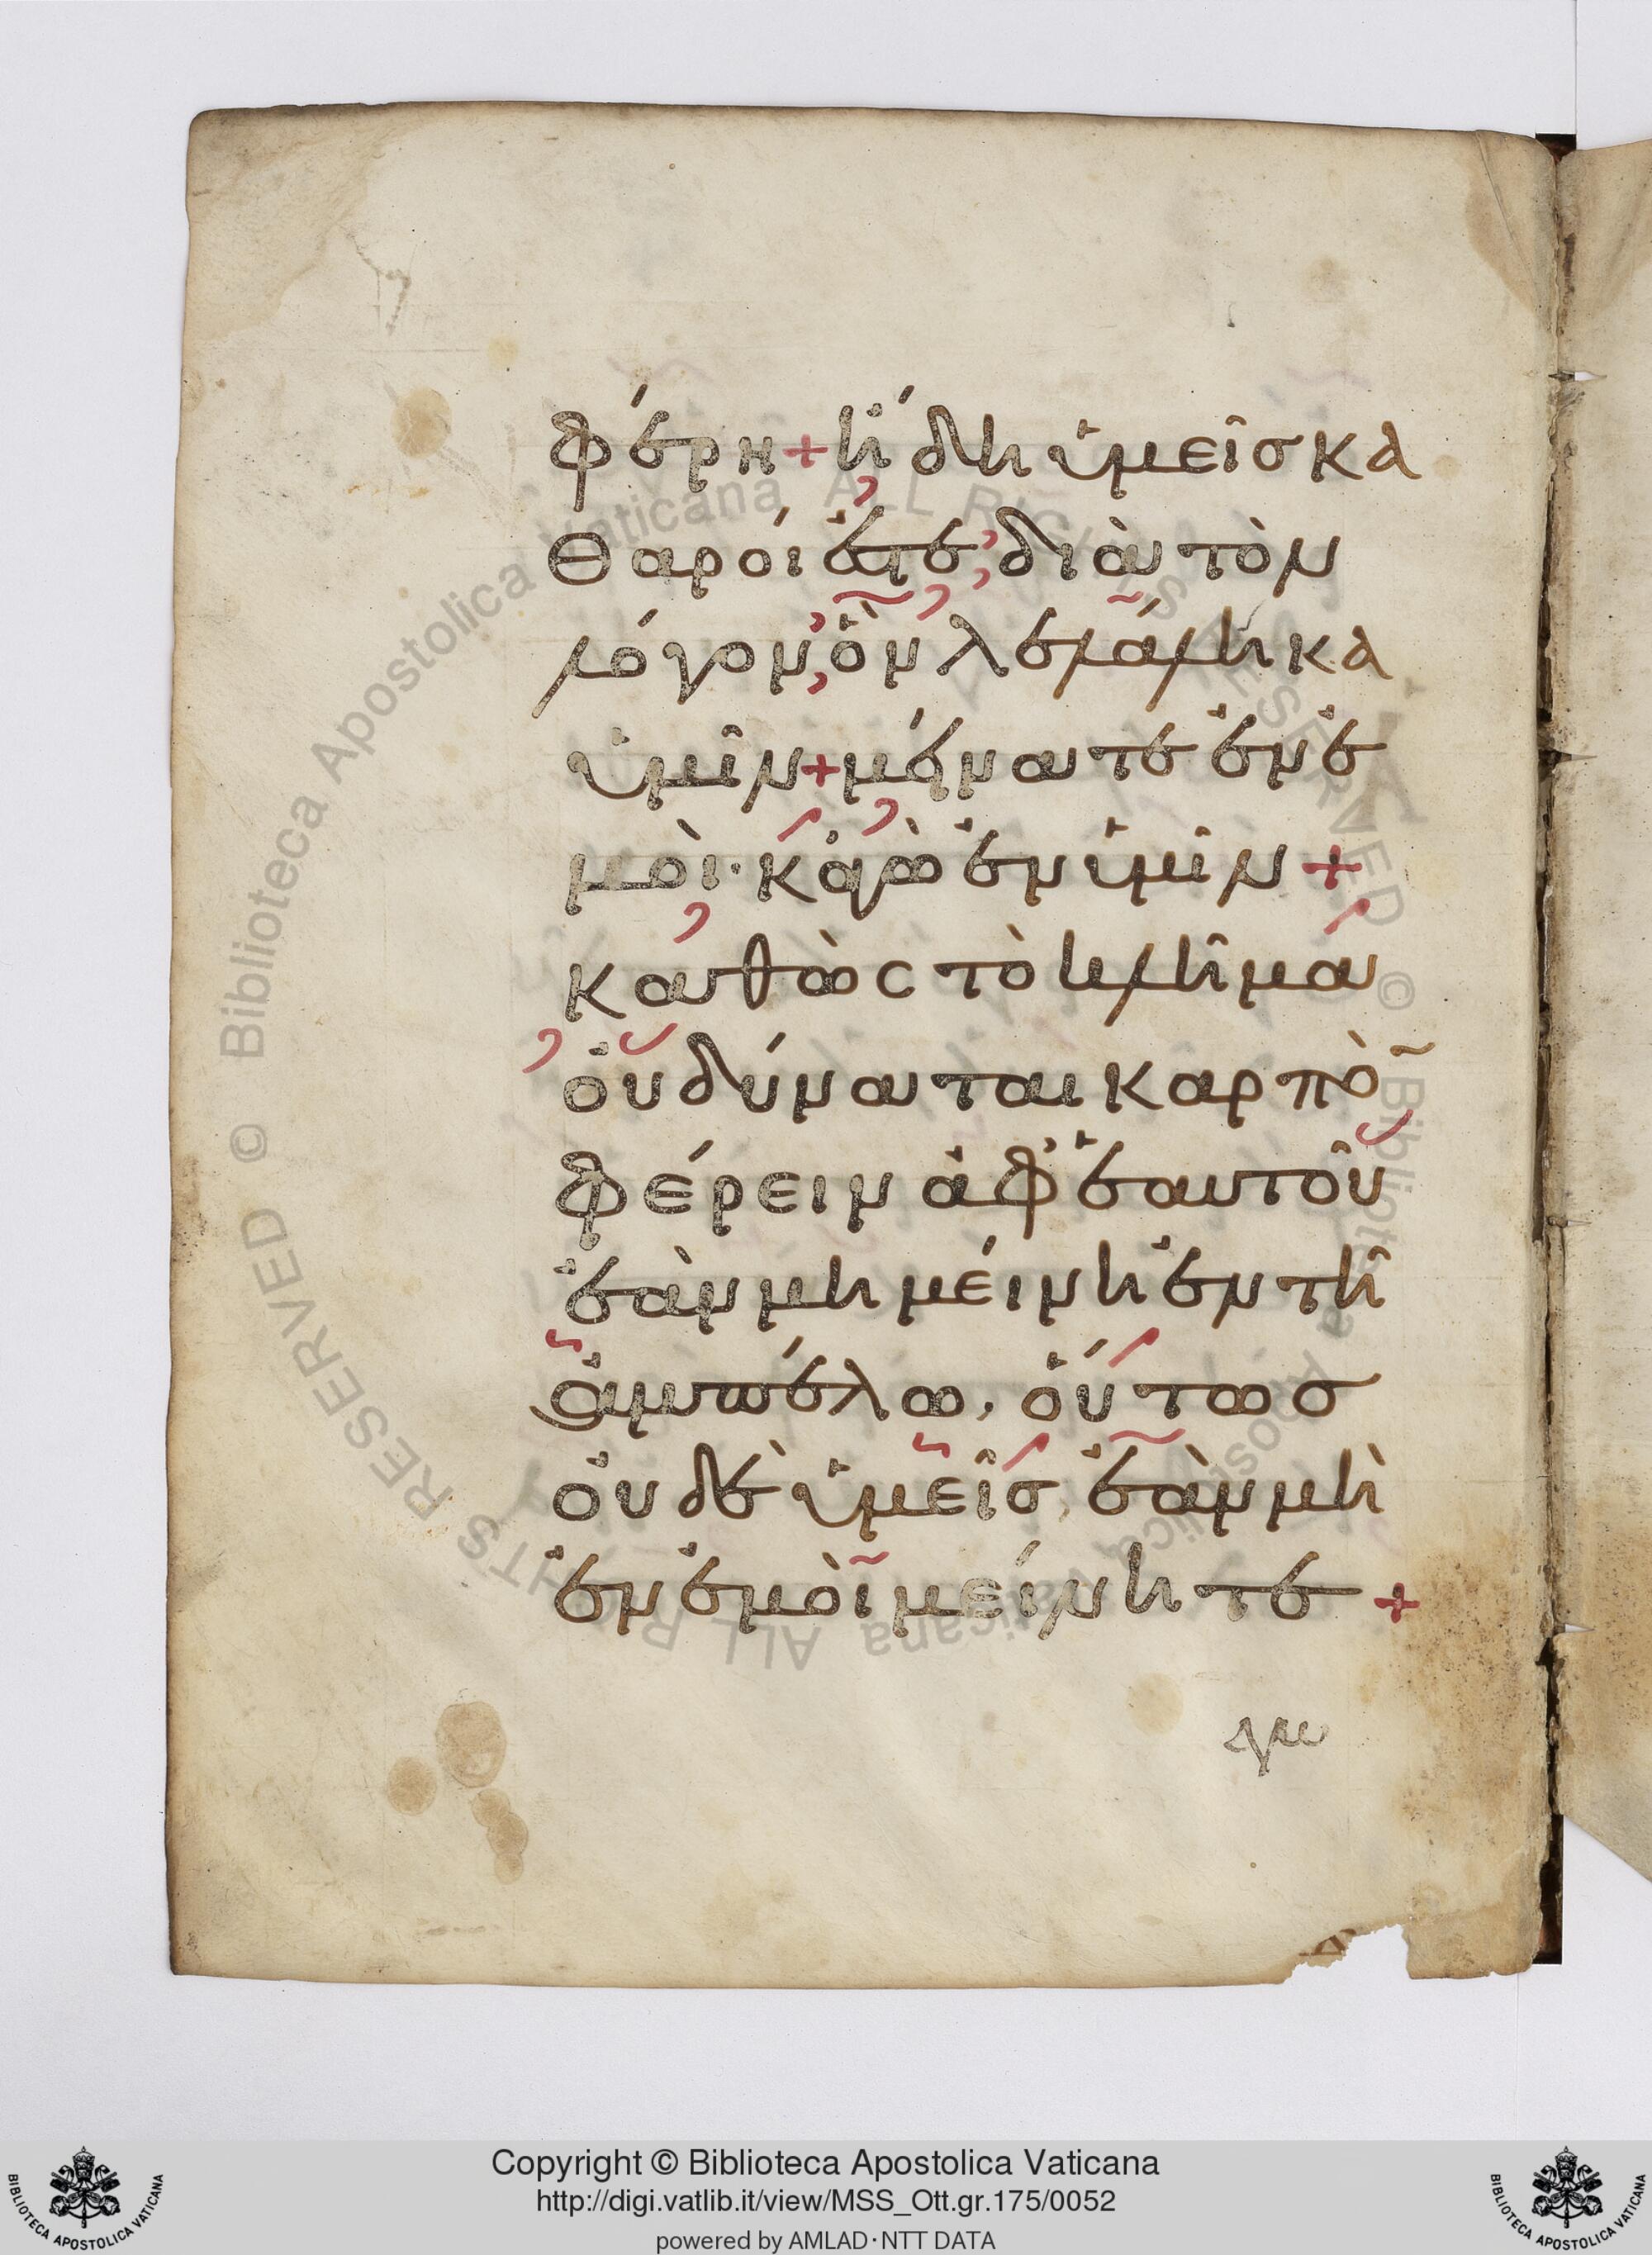 φέρη + ἤδη ὑμεῖσ κα
θαροί ἐστε, διὰ τὸν
λόγον, ὃν λελάληκα
ὑμῖν + μείνατε ἐν ἐ
μοὶ · κἀγὼ ἐν ὑμῖν +
καθὼς τὸ κλῆμα
οὐ δύναται καρπὸ
φέρειν ἀφ' ἑαυτοῦ
ἐὰν μὴ μείνη ἐν τῆ
ἀμπέλω, οὕτωσ
οὐδὲ ὑμεῖσ, ἐὰν μὴ
ἐν ἐμοὶ μείνητε +
Copyright © Biblioteca Apostolica Vaticana
http://digi.vatlib.it/view/MSS_Ott.gr.175/0052
powered by AMLAD·NTT DATA
© Biblioteca Apostolica Vaticana ALL RIGHTS RESERVED
© Biblioteca Apostolica Vaticana ALL RIGHTS RESERVED
BIBLIOTECA APOSTOLICA VATICANA
BIBLIOTECA APOSTOLICA VATICANA